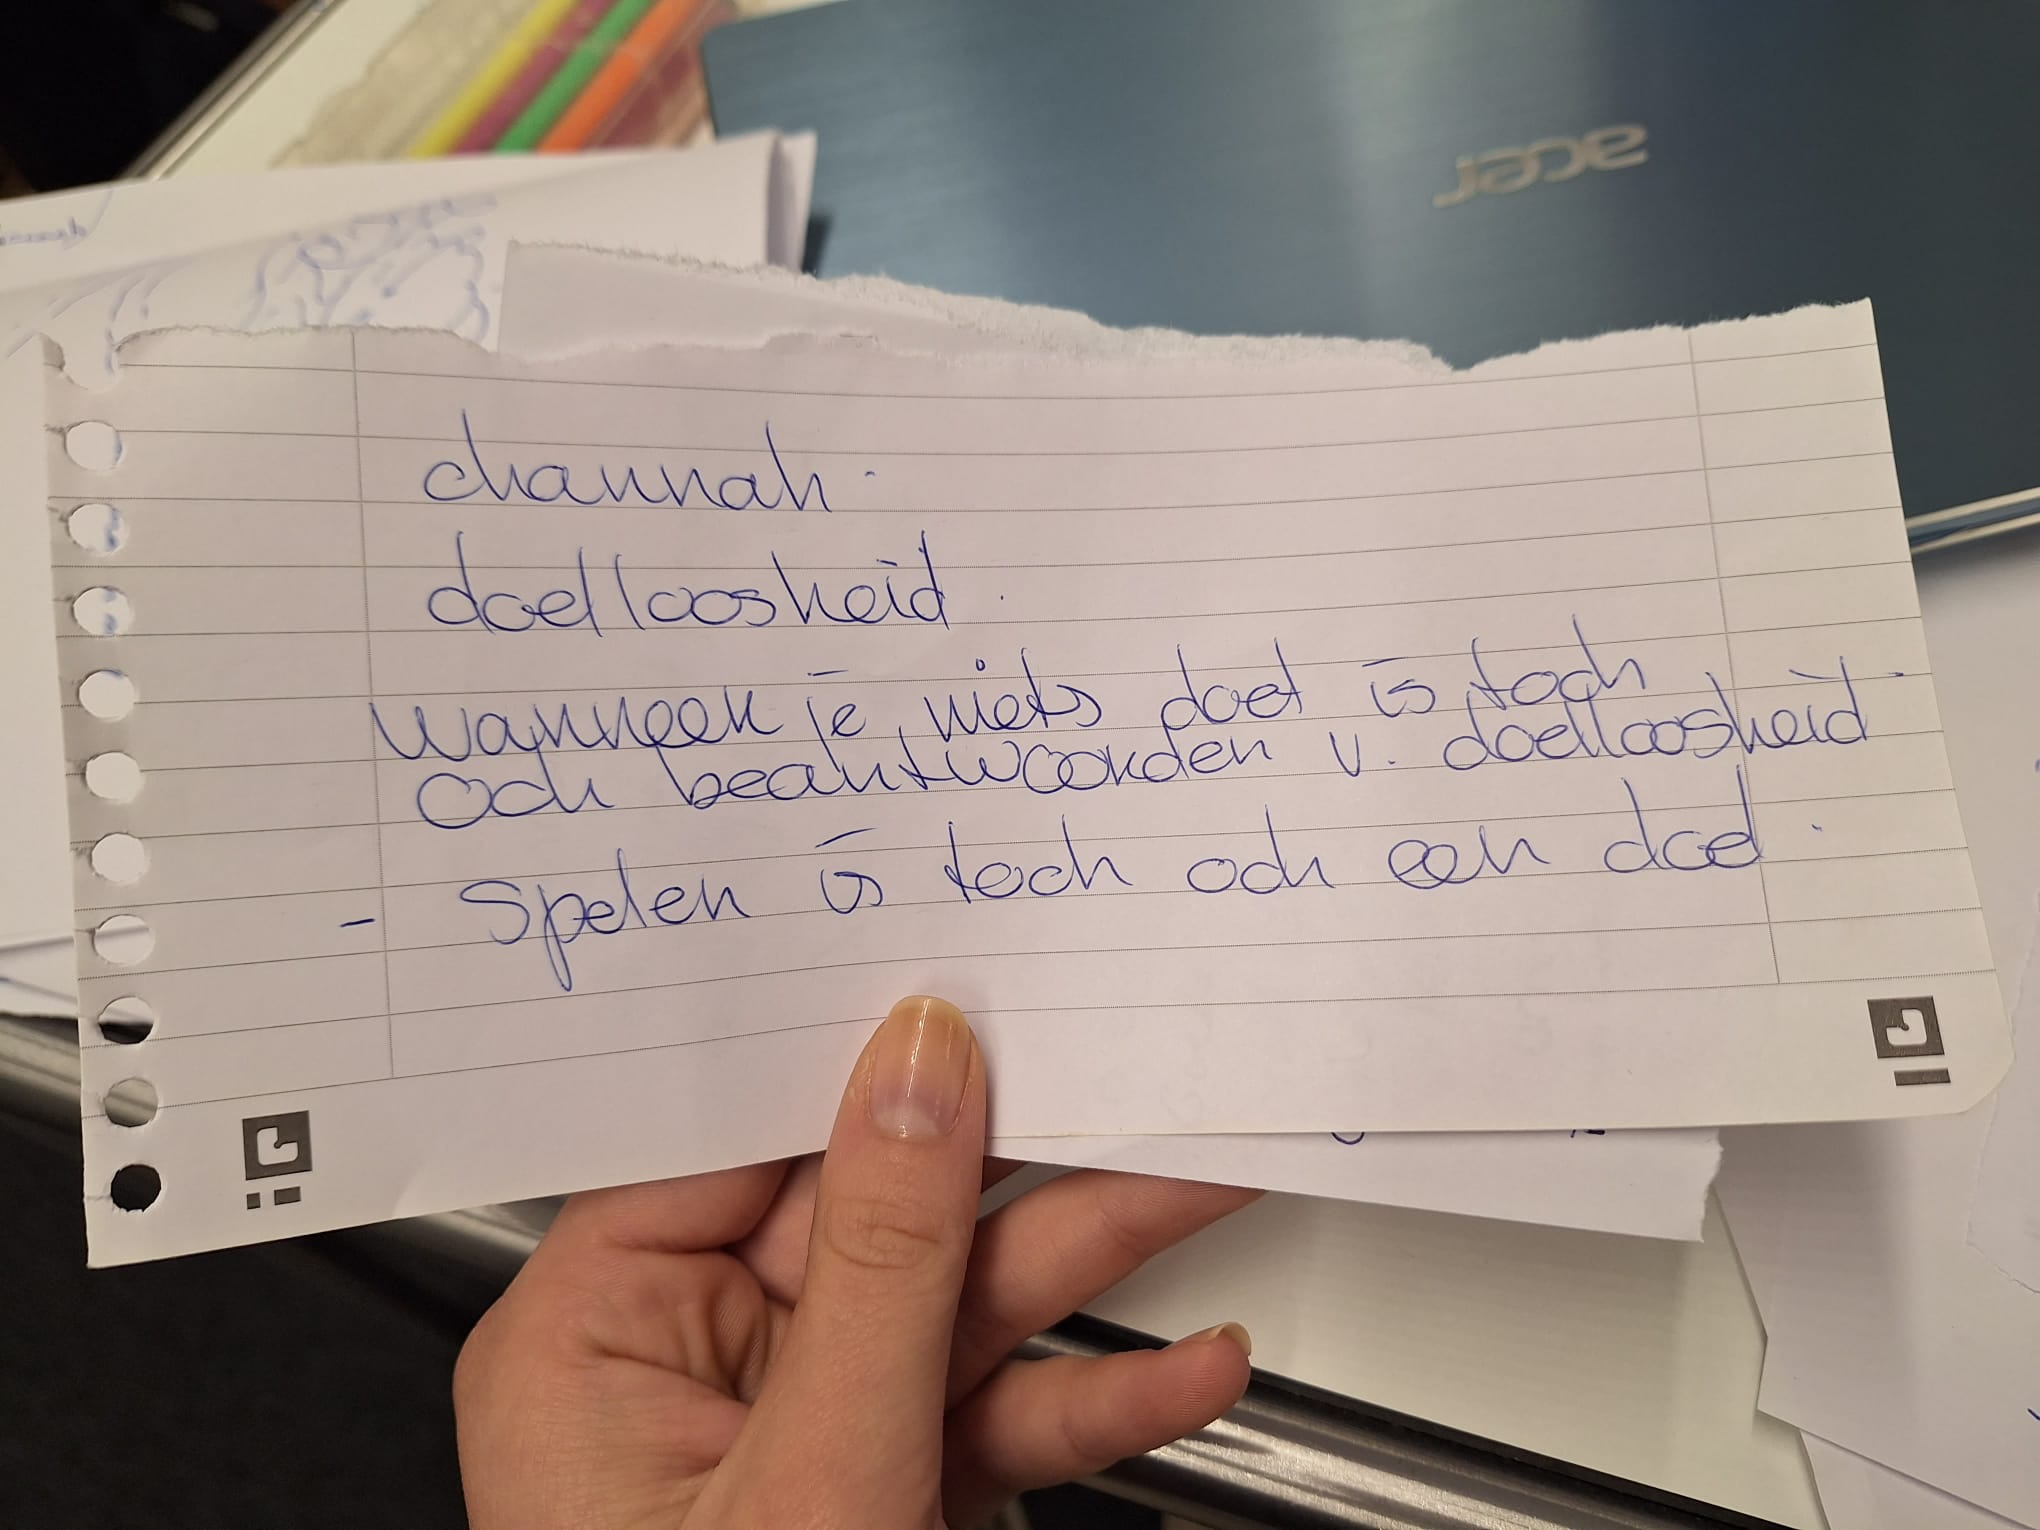 acer
channah.
doelloosheid.
wanneer je niets doet is toch
och beantwoorden v. doelloosheid.
- Spelen is toch och een doel.